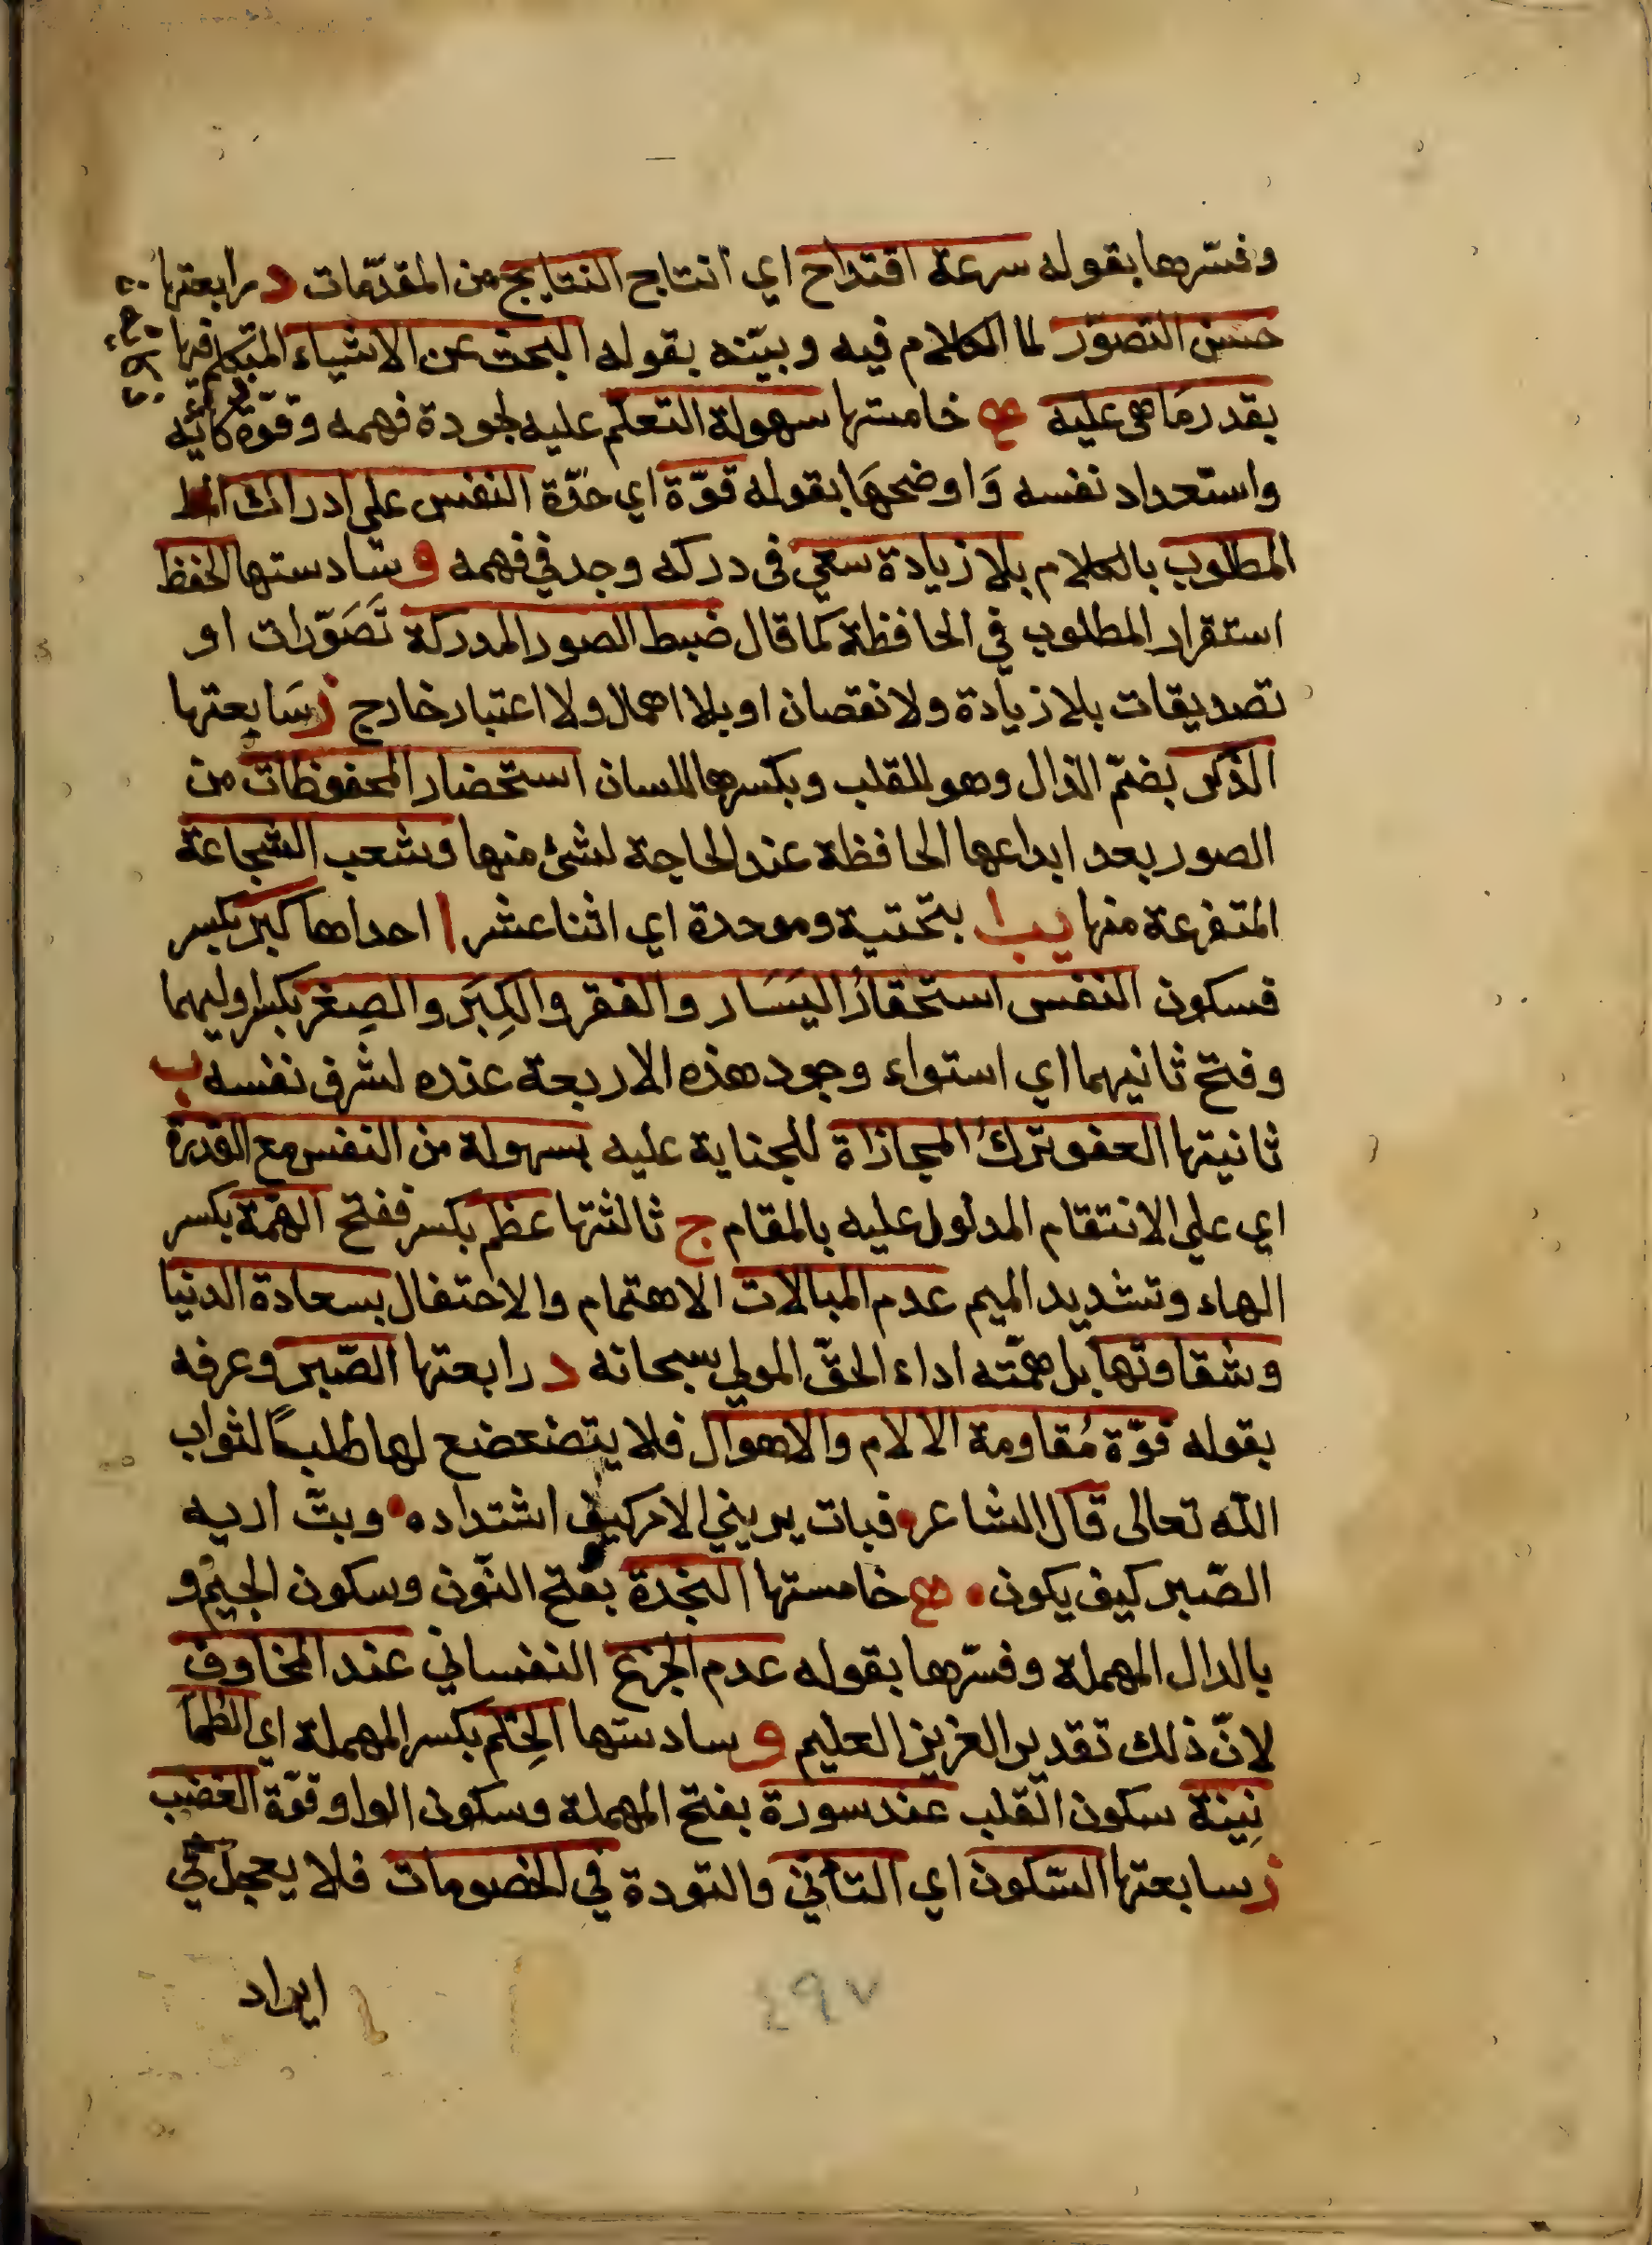 وفسّرها بقوله سرعة اقتداح اي انتاج النتايج من المقدّمات د رابعتها
حسن التصوّر لما الكلام فيه وبيّنه بقوله البحث عن الاشياء المتكلم فيها
بقدر ما هى عليه هـ خامستها سهولة التعلم عليه لجودة فهمه وقوّة
واستعداد نفسه وَاوضحهَا بقوله قوّة اي حدّة النفس على ادراك
المطلوب بالكلام بلا زيادة سعي فى دركه وجد في فهمه و سادستها الحفظ
استقرار المطلوب في الحافظة كما قال ضبط الصور المدركة تَصَوّرات او
تصديقات بلا زيادة ولا نقصان او بلا اهمال ولا اعتبار خارج ز سَابعتها
الذكر بضمّ الذال وهو للقلب وبكسرها للسان استحضار المحفوظات من
الصور بعد ايداعها الحافظة عند الحاجة لشئ منها وشعب الشجاعة
المتفرعة منها يب بتحتية وموحدة اي اثنا عشر ا احداها كبر بكسر
فسكون النفس استحقارُ اليَسَار والفقر والكِبَر والصِغر بكسر اوليهما
وفتح ثانيهما اي استواء وجود هذه الاربعة عنده لشرف نفسه ب
ثانيتها العفو ترك المجازاة للجناية عليه بسهولة من النفس مع القدرة
اي علي الانتقام المدلول عليه بالمقام ج ثالثتها عظم بكسر ففتح الهمّة بكسر
الهاء وتشديد الميم عدم المبالات الاهتمام والاحتفال بسعادة الدنيا
وشقاوتها بل همّته اداء الحقّ المولي سبحانه د رابعتها الصّبر وعرفه
بقوله قوّة مُقاومة الالام والاهوال فلا يتضعضع لها طلباً لثواب
الله تعالى قال الشاعر فبات يريني الامر كيف اشتداده وبتّ اريه
الصّبر كيف يكون هـ خامستها النجدة بفتح النّون وسكون الجيم و
بالدال المهملة وفسّرها بقوله عدم الجزع النفساني عند المخاوف
لانّ ذلك تقدير العزيز العليم و سادستها الحِلم بكسر المهملة اي الطما
نِينة سكون القلب عند سورة بفتح المهملة وسكون الواو قوّة الغضب
ز سابعتها السّكون اي التأنّي والتودة في الخصومات فلا يعجل في
ايراد
٤٩٧